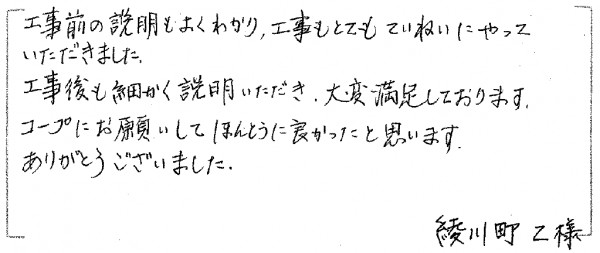 工事前の説明もよくわかり,工事もとてもていねいにやって
いただきました.
工事後も細かく説明いただき.大変満足しております.
コープにお願いしてほんとうに良かったと思います.
ありがとうございました.
綾川町 Z様